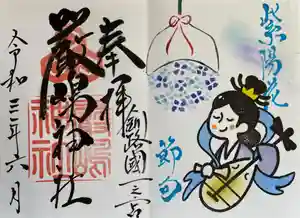 紫陽花
節句
奉拝
釧路國一之宮
厳島神社
令和三年六月